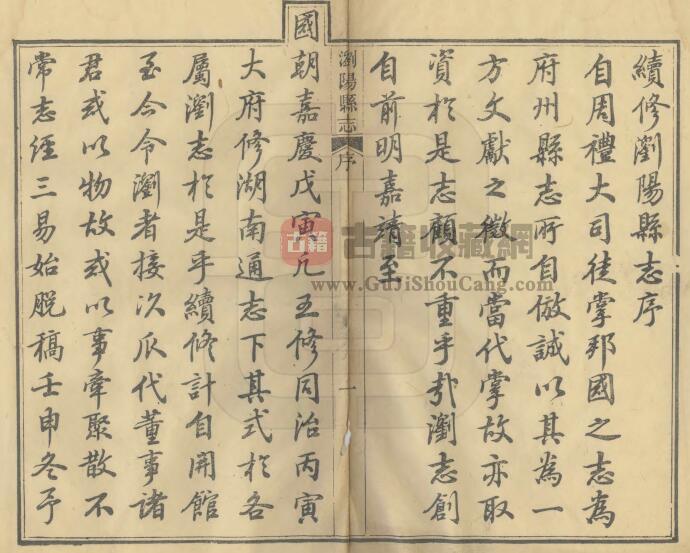 續修瀏陽縣志序
自周禮大司徒掌邦國之志為
府州縣志所自倣誠以其為一
方文獻之徵而當代掌故亦取
資於是志顧不重乎哉瀏志創
自前明嘉靖至
瀏陽縣志
序
一
國朝嘉慶戊寅凡五修同治丙寅
大府修湖南通志下其式於各
屬瀏志於是乎續修計自開館
至今令瀏者接次瓜代董事諸
君或以物故或以事牽聚散不
常志經三易始脫稿壬申冬予
古籍
古籍收藏網
www.GuJiShouCang.com